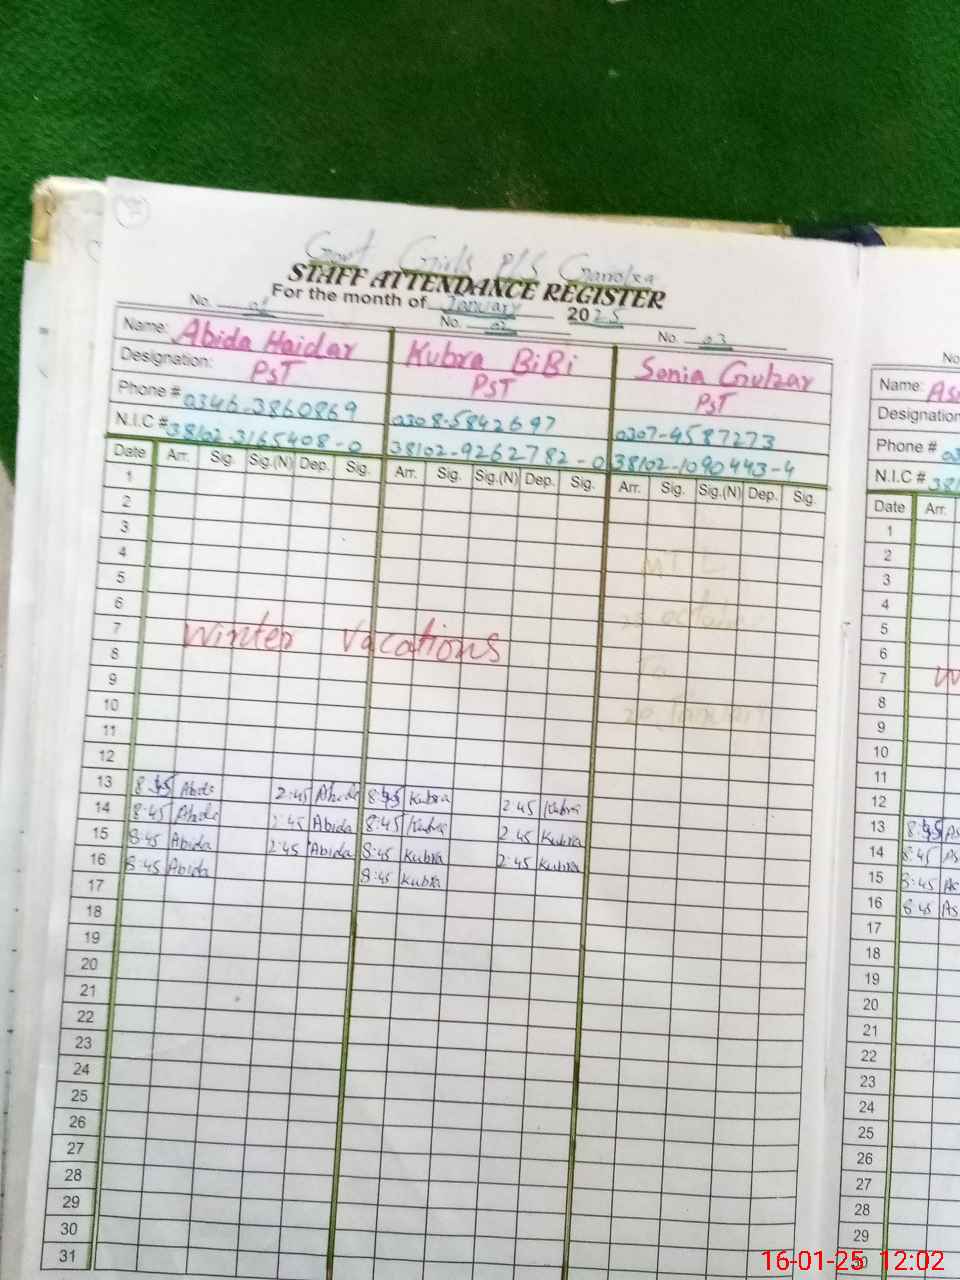 Govt Girls P/S
STAFF ATTENDANCE REGISTER
For the month of January 2025
No. 01 No. 02 No. 03 No
Name: Abida Haidar Kubra BiBi Sonia Gulzar Name: As
Designation: PST PST PST Designation
Phone # 0346-3860869 0308-5842697 0307-4587273 Phone # 03
N.I.C # 38102-3165408-0 38102-9262782-0 38102-1090443-4 N.I.C # 381
Date Arr. Sig. Sig.(N) Dep. Sig. Arr. Sig. Sig.(N) Dep. Sig. Arr. Sig. Sig.(N) Dep. Sig. Date Arr.
1 1
2 2
3 3
4 MTL 4
5 5
6 25 october 6
7 Winter Vacations To 7 W
8 8
9 20 January 9
10 10
11 11
12 12
13 8:45 Abida 2:45 Abida 8:45 Kubra 2:45 Kubra 13 8:45 As
14 8:45 Abida 2:45 Abida 8:45 Kubra 2:45 Kubra 14 8:45 As
15 8:45 Abida 2:45 Abida 8:45 Kubra 2:45 Kubra 15 8:45 As
16 8:45 Abida 8:45 Kubra 16 8:45 As
17 17
18 18
19 19
20 20
21 21
22 22
23 23
24 24
25 25
26 26
27 27
28 28
29 29
30 30
31
16-01-25 12:02